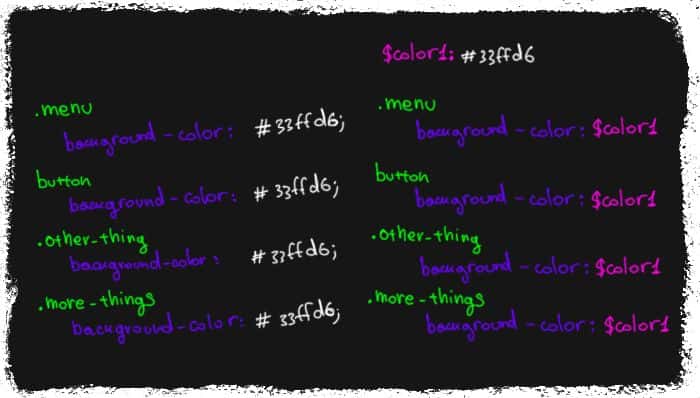 .menu
background-color: #33ffd6;
button
background-color: #33ffd6;
.other-thing
background-color: #33ffd6;
.more-things
background-color: #33ffd6;
$color1: #33ffd6
.menu
background-color: $color1
button
background-color: $color1
.other-thing
background-color: $color1
.more-things
background-color: $color1